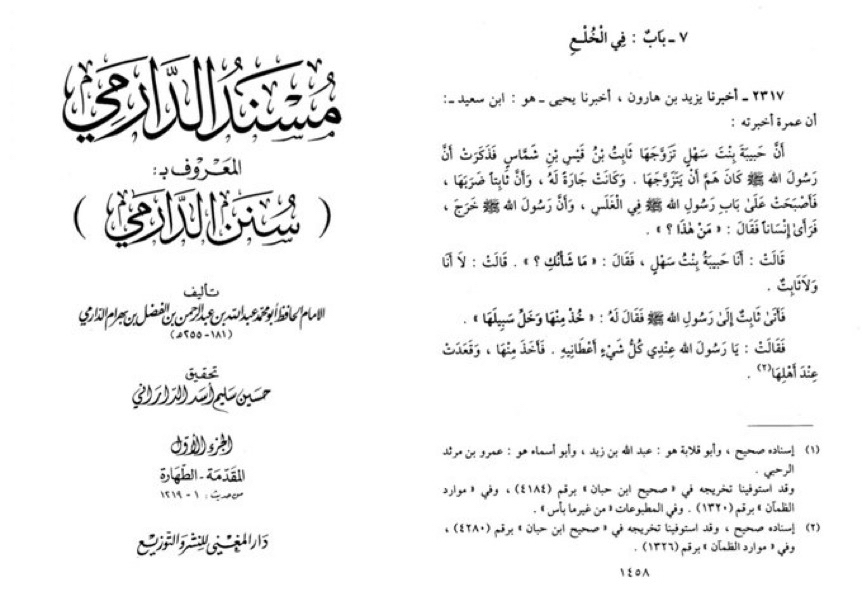 مُسْنَدُ الدَّارِمِيِّ
المَعْرُوف بـ:
( سُنَن الدَّارِمِي )
تأليف
الإمام الحافظ أبو محمد عبدالله بن عبدالرحمن بن الفضل بن بهرام الدارمي
(١٨١-٢٥٥ھ)
تحقيق
حسين سليم أسد الداراني
الجزء الأول
المقدمة - الطهارة
من حديث : ١ - ١٢١٩
دار المغني للنشر والتوزيع
٧ - بَابٌ : فِي الْخُلْعِ
٢٣١٧ - أخبرنا يزيد بن هارون ، أخبرنا يحيى - هو : ابن سعيد - :
أن عمرة أخبرته :
أَنَّ حَبِيبَةَ بِنْتَ سَهْلٍ تَزَوَّجَهَا ثَابِتُ بْنُ قَيْسِ بْنِ شَمَّاسٍ فَذَكَرَتْ أَنَّ
رَسُولَ الله ﷺ كَانَ هَمَّ أَنْ يَتَزَوَّجَهَا . وَكَانَتْ جَارَةً لَهُ ، وَأَنَّ ثَابِتاً ضَرَبَهَا ،
فَأَصْبَحَتْ عَلَىٰ بَابِ رَسُولِ الله ﷺ فِي الْغَلَسِ ، وَأَنَّ رَسُولَ الله ﷺ خَرَجَ ،
فَرَأَىٰ إِنْسَاناً فَقَالَ : « مَنْ هٰذَا ؟ » .
قَالَتْ : أَنَا حَبِيبَةُ بِنْتُ سَهْلٍ ، فَقَالَ : « مَا شَأْنُكِ ؟ » . قَالَتْ : لاَ أَنَا
وَلاَ ثَابِتٌ .
فَأَتَىٰ ثَابِتٌ إِلَىٰ رَسُولِ الله ﷺ فَقَالَ لَهُ : « خُذْ مِنْهَا وَخَلِّ سَبِيلَهَا » .
فَقَالَتْ : يَا رَسُولَ الله عِنْدِي كُلُّ شَيْءٍ أَعْطَانِيهِ . فَأَخَذَ مِنْهَا ، وَقَعَدَتْ
عِنْدَ أَهْلِهَا(٢) .
(١) إسناده صحيح ، وأبو قلابة هو : عبد الله بن زيد ، وأبو أسماء هو : عمرو بن مرثد
الرحبي .
وقد استوفينا تخريجه في « صحيح ابن حبان » برقم (٤١٨٤) ، وفي « موارد
الظمآن » برقم (١٣٢٠) . وفي المطبوعات « من غيرما بأس » .
(٢) إسناده صحيح ، وقد استوفينا تخريجه في « صحيح ابن حبان » برقم (٤٢٨٠) ،
وفي « موارد الظمآن » برقم (١٣٢٦) .
١٤٥٨